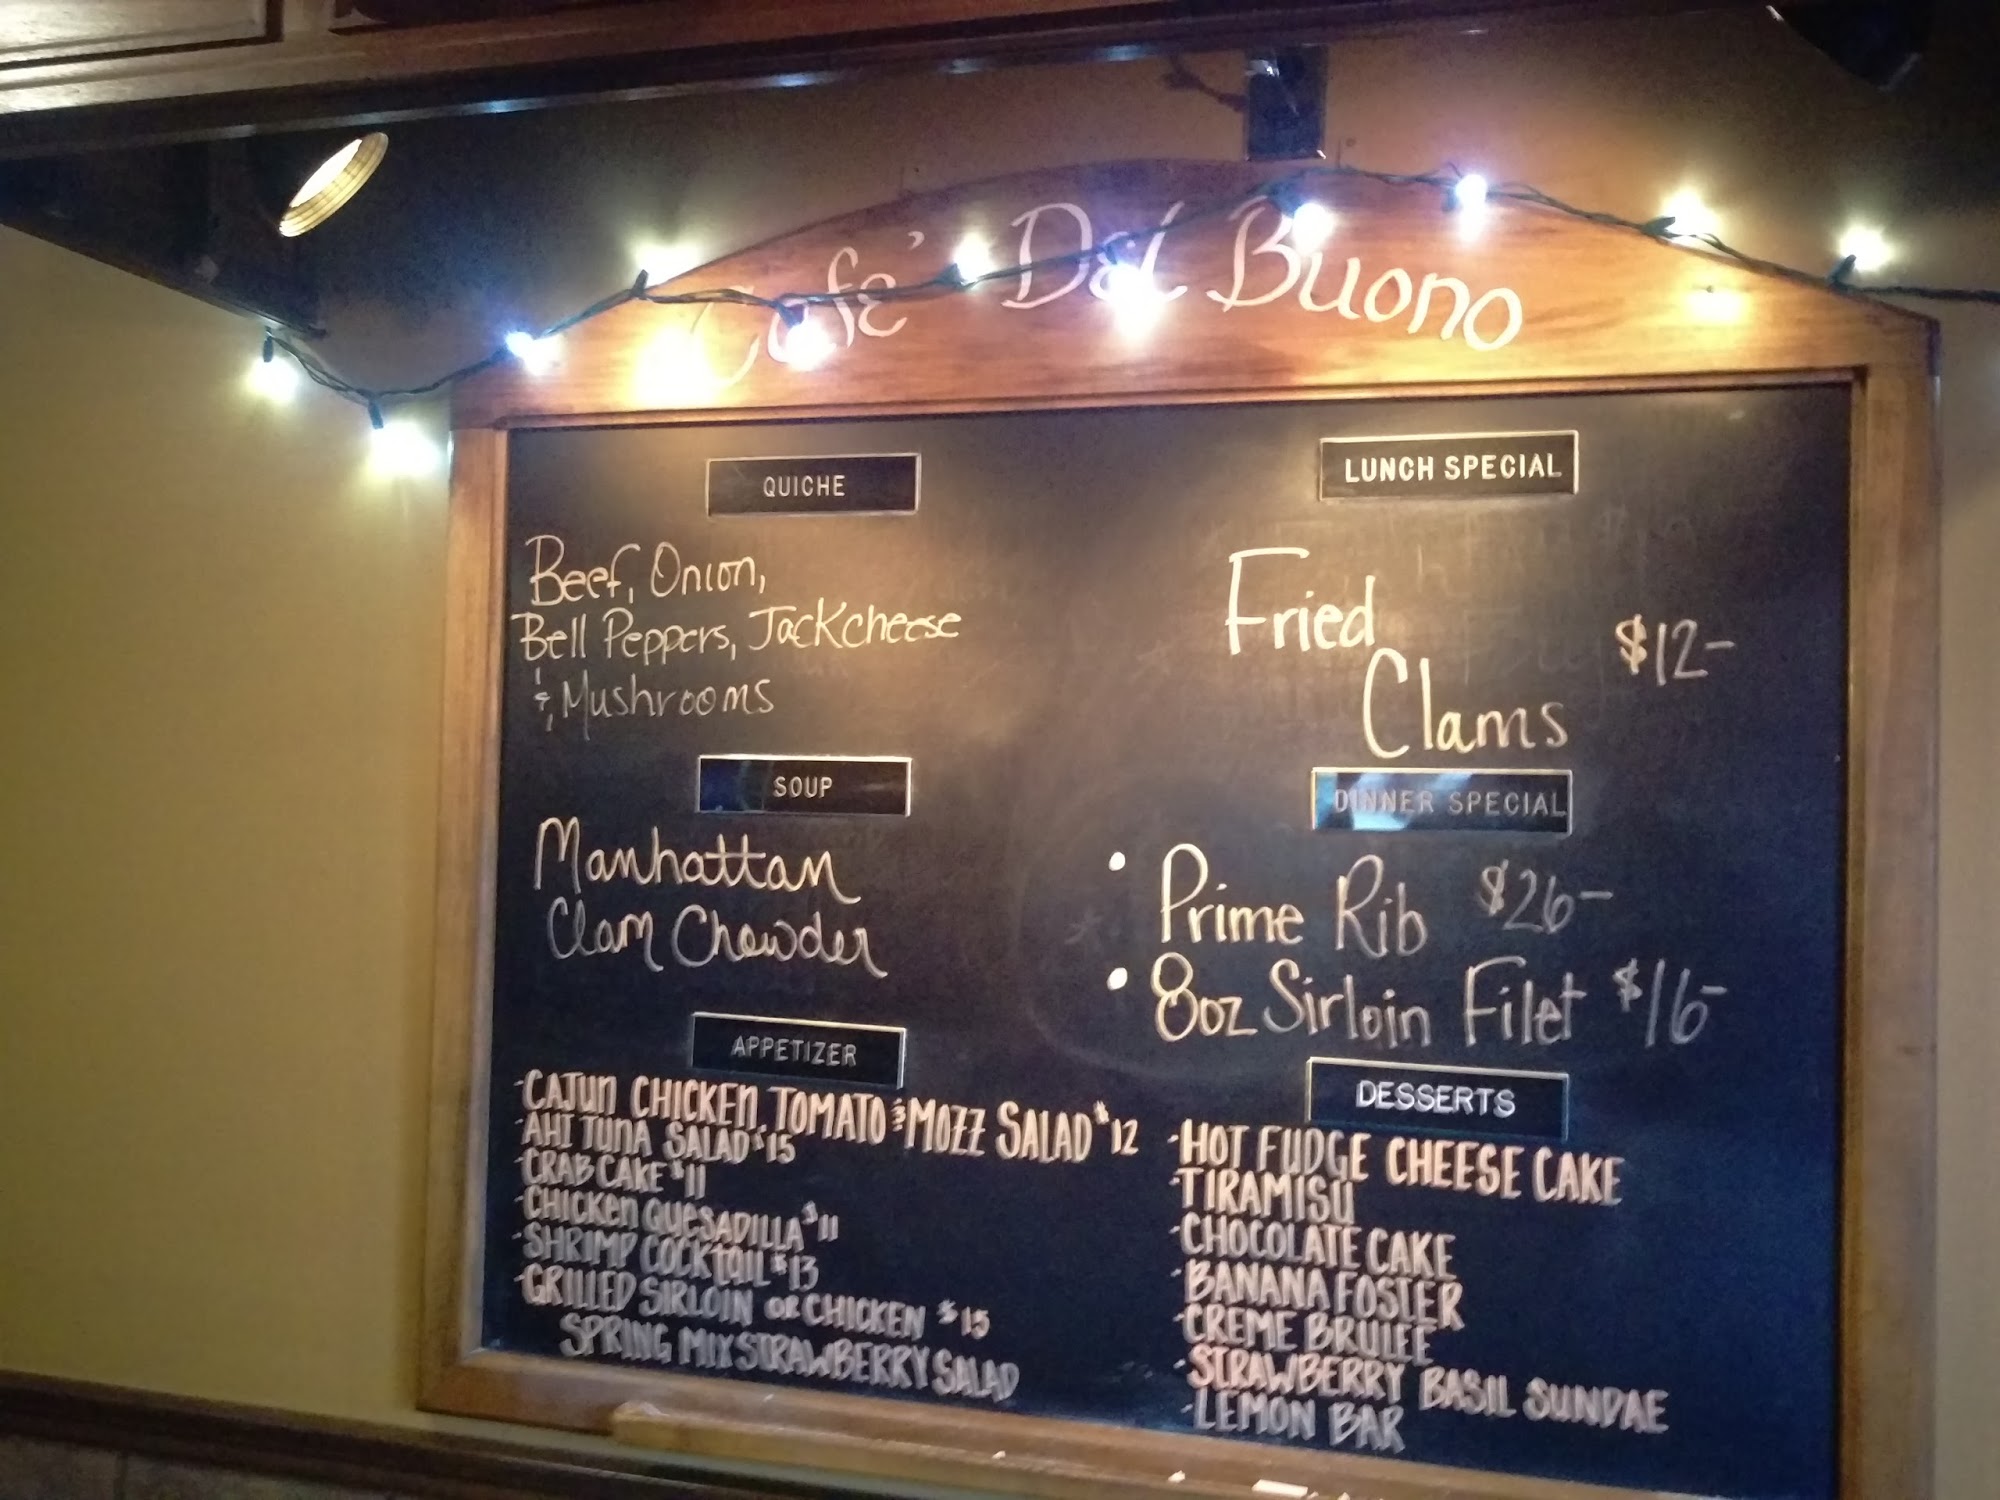 Café Del Buono
QUICHE
Beef, Onion,
Bell Peppers, Jack cheese
& Mushrooms
SOUP
Manhattan
Clam Chowder
APPETIZER
-CAJUN CHICKEN, TOMATO & MOZZ SALAD $12
-AHI TUNA SALAD $15
-CRAB CAKE $11
-CHICKEN QUESADILLA $11
-SHRIMP COCKTAIL $13
-GRILLED SIRLOIN OR CHICKEN $15
SPRING MIX STRAWBERRY SALAD
LUNCH SPECIAL
Fried
Clams $12-
DINNER SPECIAL
• Prime Rib $26-
• 8oz Sirloin Filet $16-
DESSERTS
-HOT FUDGE CHEESE CAKE
-TIRAMISU
-CHOCOLATE CAKE
-BANANA FOSTER
-CREME BRULEE
-STRAWBERRY BASIL SUNDAE
-LEMON BAR